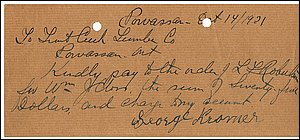 Powassan Oct 14/1921
To Trout Creek Lumber Co
Powassan Ont
Kindly pay to the order of
for Wm the sum of Seventy five
Dollars and charge my account
George Kromer